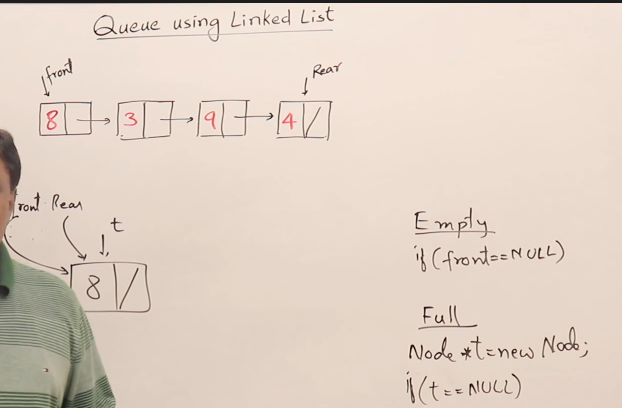 Queue using Linked List
front
Rear
8 3 9 4 /
front Rear
t
8 /
Empty
if (front==NULL)
Full
Node *t=new Node;
if (t==NULL)